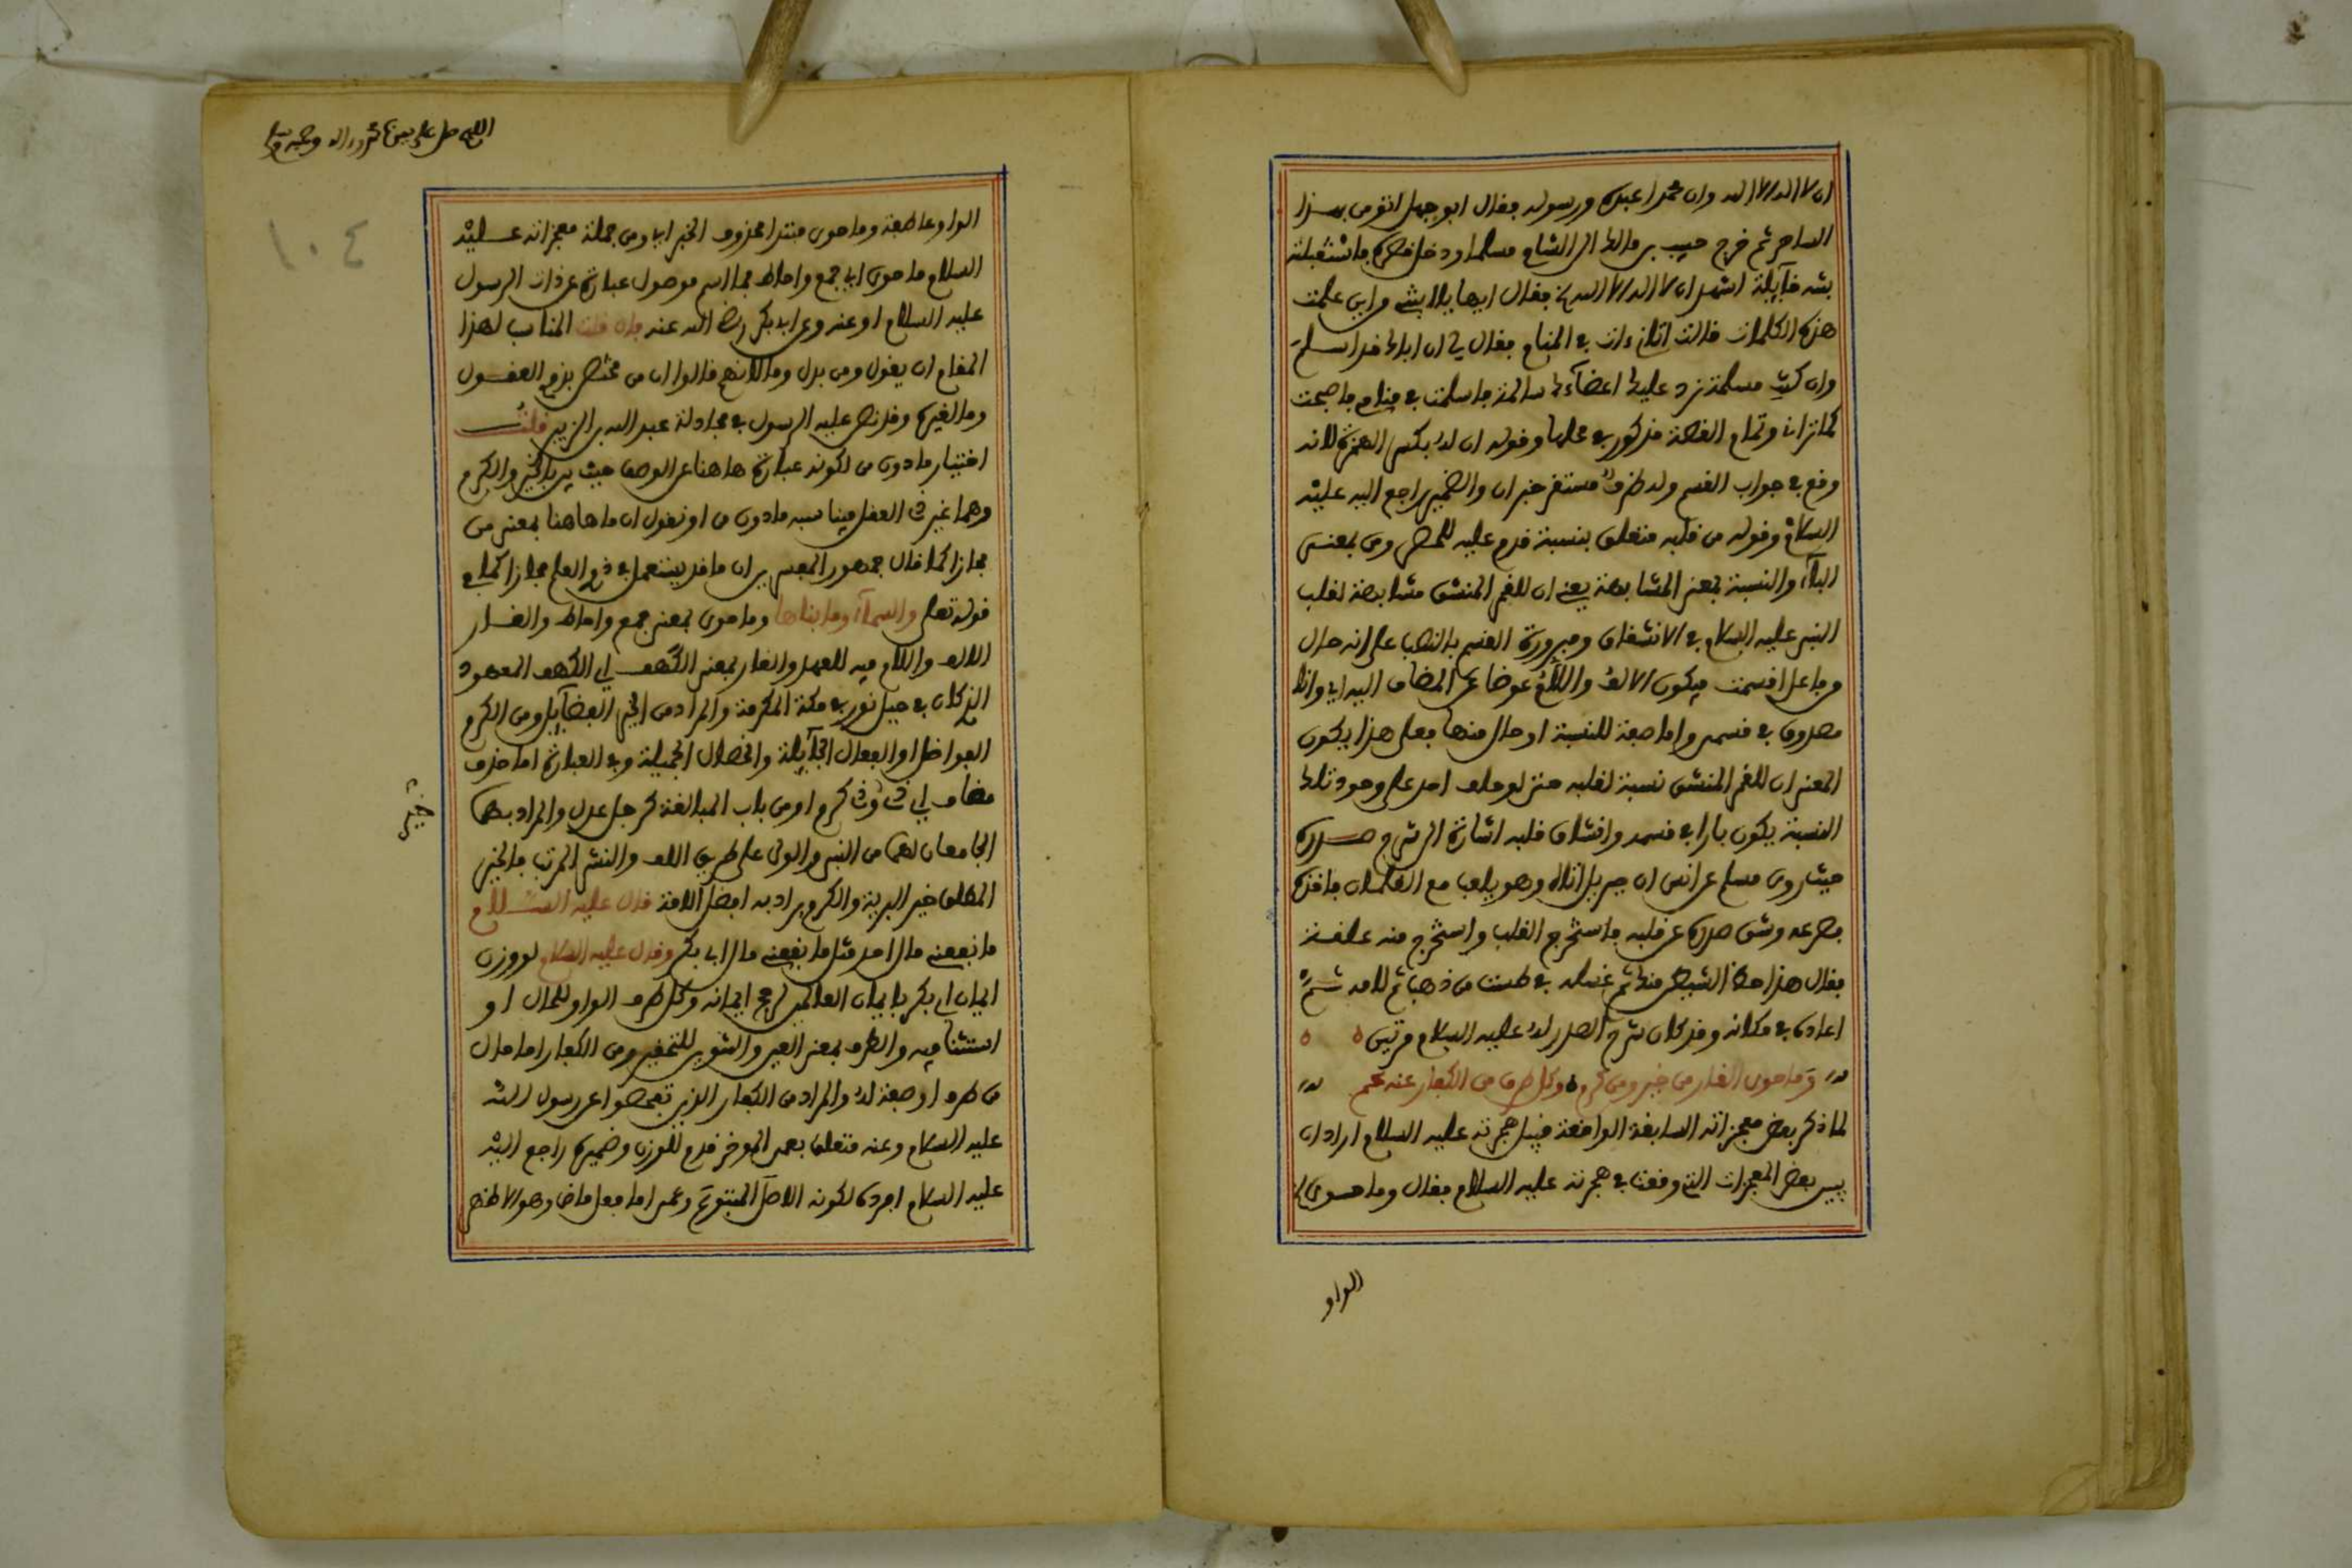 ان لا اله الا الله وان محمدا عبده ورسوله فقال ابو جهل انؤمن بهذا
الساحر ثم خرج حبيب بن مالك الى الشام مسلما ودخل قصره فاستقبلته
بنته قايلة اشهد ان لا اله الا الله فقال ايها يا بنتي من اين علمت
هذه الكلمات قالت اتاني ءات في المنام فقال لي ان اباك قد اسلم
وان كنت مسلمة نرد عليك اعضاءك سالمة فاسلمت في منامي فاصبحت
كما تراني وتمام القصة مذكور في محلها وقوله ان له بكسر الهمزة لانه
وقع في جواب القسم وله ظرف مستقر خبر ان والضمير راجع اليه عليه
السلام وقوله من قلبه متعلق بنسبة قدم عليه للحصر ومن بمعنى
الباء والنسبة بمعنى المشابهة يعني ان للقمر المنشق مشابهة لقلب
النبي عليه السلام في الانشقاق ومبرورة القسم بالنصب على انه حال
من فاعل اقسمت فيكون الالف واللام عوضا عن المضاف اليه اي وانا
مصدوق في قسمي واما صفة للنسبة او حال منها فعلى هذا يكون
المعنى ان للقمر المنشق نسبة لقلبه حتى لو حلف احد على وجود تلك
النسبة يكون بارا في قسمه وانشقاق قلبه اشارة الى شرح صدره
حيث روى مسلم عن انس ان جبريل اتاه وهو يلعب مع الغلمان فاخذه
فصرعه وشق صدره عن قلبه فاستخرج القلب واستخرج منه علقة
فقال هذا حظ الشيطان منك ثم غسله في طست من ذهب ثم لامه ثم
اعاده في مكانه وقد كان شرح الصدر له عليه السلام مرتين
وما حوى الغار من خير ومن كرم وكل طرف من الكفار عنه عم
لما ذكر بعض معجزاته السابقة الواقعة قبيل هجرته عليه السلام اراد ان
يبين بعض المعجزات التي وقعت في هجرته عليه السلام فقال وما حوى
الواو
اللهم صل على سيدنا محمد واله وصحبه وسلم
١٠٤
الواو عاطفة وما حوى مبتدا محذوف الخبر اي ومن جملة معجزاته عليه
السلام ما حوى اي جمع واحاط فما اسم موصول عبارة عن ذات الرسول
عليه السلام او عنه وعن ابي بكر رضي الله عنه فان قلت المناسب لهذا
المقام ان يقول ومن بدل وما لانهم قالوا ان من مختص بذوي العقول
وما لغيره وقد نص عليه الرسول في مجادلة عبد الله بن الزبير قلت
اختيار ما دون من لكونه عبارة هاهنا عن الوصف حيث بين بالخير والكرم
وهما غير ذي العقل فيناسبه ما دون من او نقول ان ما هاهنا بمعنى من
مجازا كما قال جمهور المفسرين ان ما قد يستعمل في ذوي العلم مجازا كما في
قوله تعلى والسماء وما بناها وما حوى بمعنى جمع واحاط والغار
الالف واللام فيه للعهد والغار بمعنى الكهف اي الكهف المعهود
الذي كان في جبل ثور في مكة المكرمة والمراد من الخير الفضايل ومن الكرم
الفواضل او الفعال الجليلة والخصال الجميلة وفي العبارة اما حذف
مضاف اي ذي خير وذي كرم او من باب المبالغة كرجل عدل والمراد بهما
خير
الجامعان لهما من النبي والولي على طريق اللف والنشر المرتب فالخير
المطلق خير البرية والكرم يراد به افضل الامة قال عليه السلام
ما نفعني مال احد مثل ما نفعني مال ابي بكر وقال عليه السلام لو وزن
ايمان ابي بكر بايمان العالمين لرجح ايمانه وكل طرف الواو للحال او
استئنافية والطرف بمعنى العين والتنوين للتحقير ومن الكفار اما حال
من طرف او صفة له والمراد من الكفار الذين تفحصوا عن رسول الله
عليه السلام وعنه متعلق بعمي الموخر قدم للوزن وضميره راجع اليه
عليه السلام افرده لكونه الاصل المتبوع وعمي اما فعل ماض وهو الاظهر